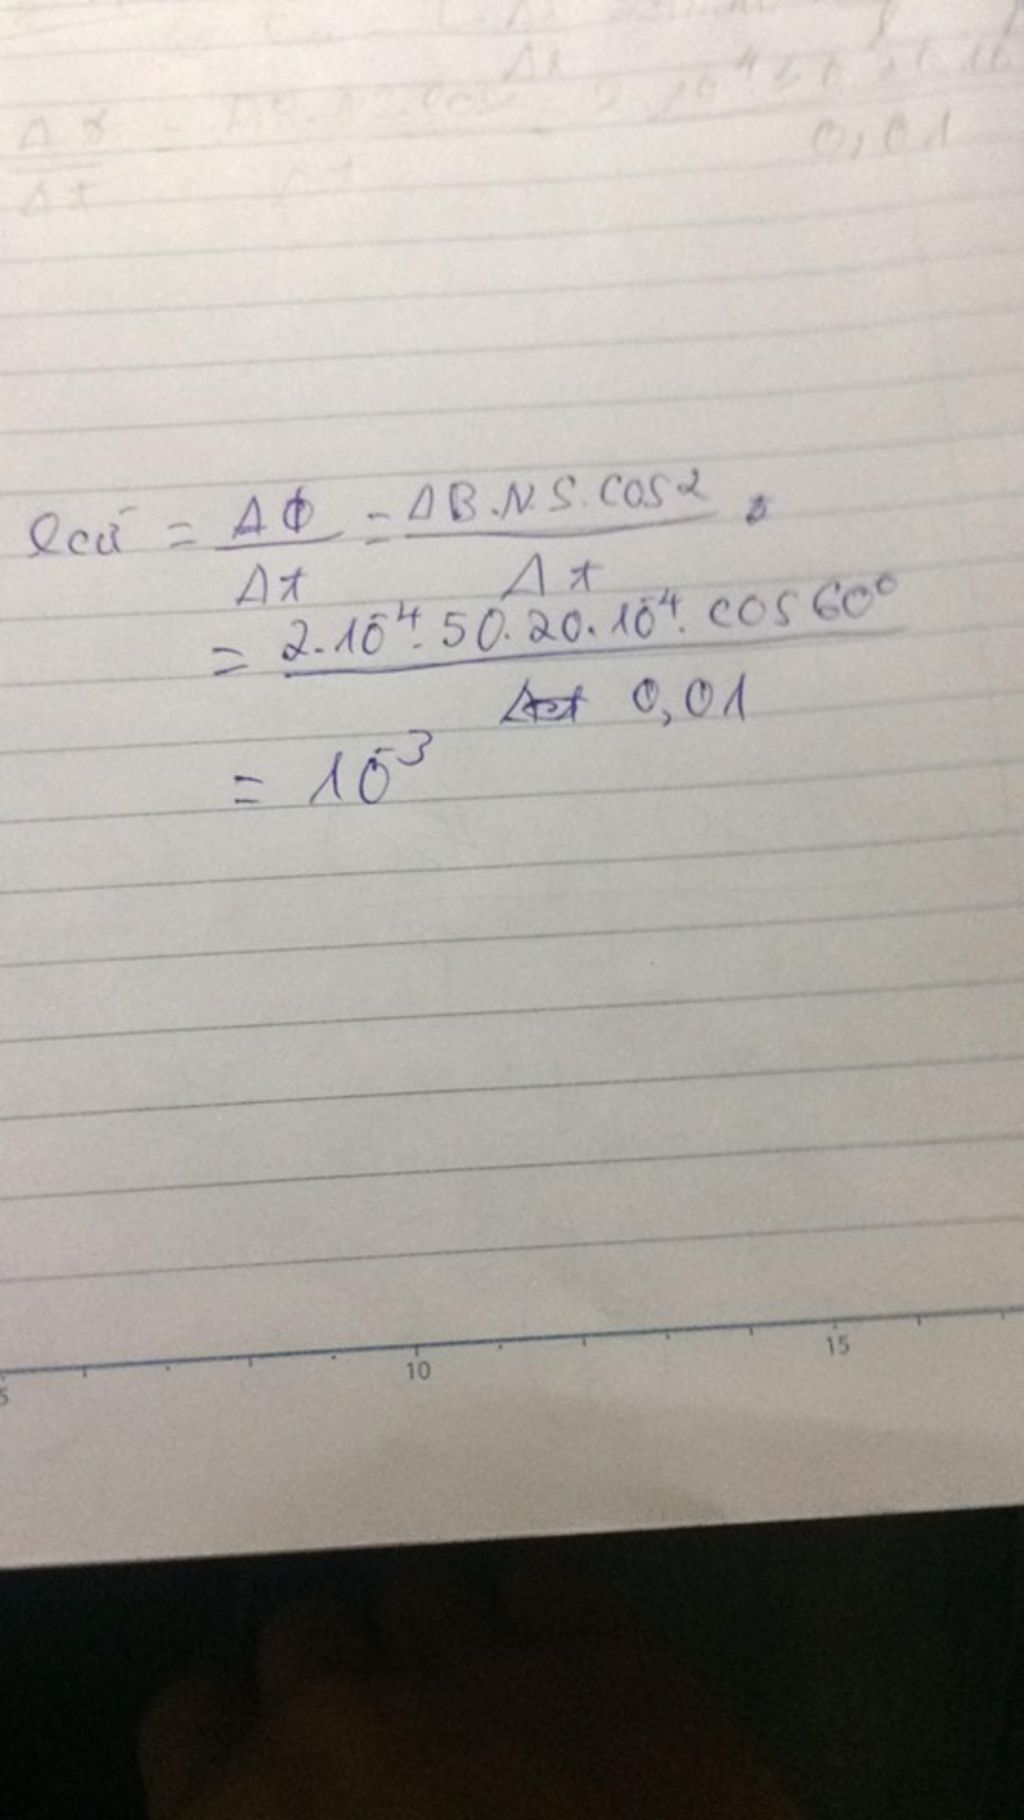 0,01
ecư = ΔΦ/Δt = ΔB.N.S.cosα/Δt
= 2.10⁻⁴.50.20.10⁻⁴.cos60⁰/0,01
= 10⁻³
5 10 15